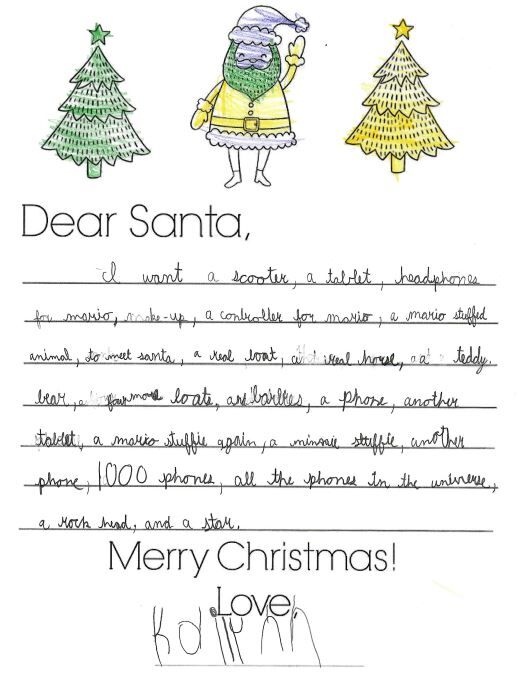 Dear Santa,
I want a scooter, a tablet, headphones
for mario, make-up, a controller for mario, a mario stuffed
animal, to meet santa, a real boat, a real horse, a teddy
bear, four more boats, barbies, a phone, another
tablet, a mario stuffie again, a minnie stuffie, another
phone, 1000 phones, all the phones in the universe,
a rock head, and a star.
Merry Christmas!
Love,